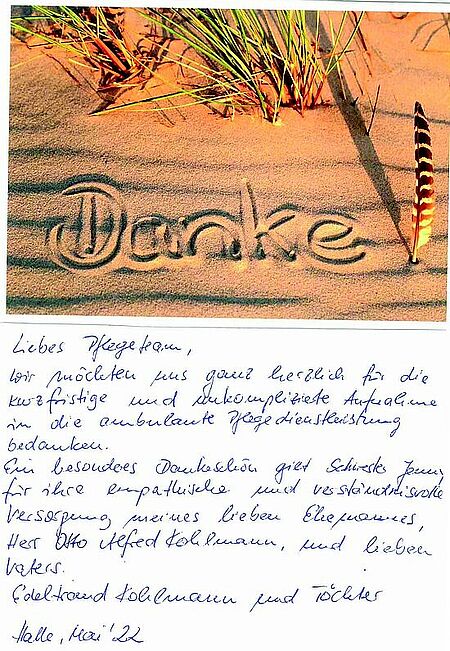 Danke
Liebes Pflegeteam,
wir möchten uns ganz herzlich für die
kurzfristige und unkomplizierte Aufnahme
in die ambulante Pflegedienstleistung
bedanken.
Ein besonderes Dankeschön gilt Schwester Jenny
für ihre empathische und verständnisvolle
Versorgung meines lieben Ehemannes,
Herr Otto Alfred Kohlmann, und lieben
Vaters.
Edeltraud Kohlmann und Töchter
Halle, Mai '22